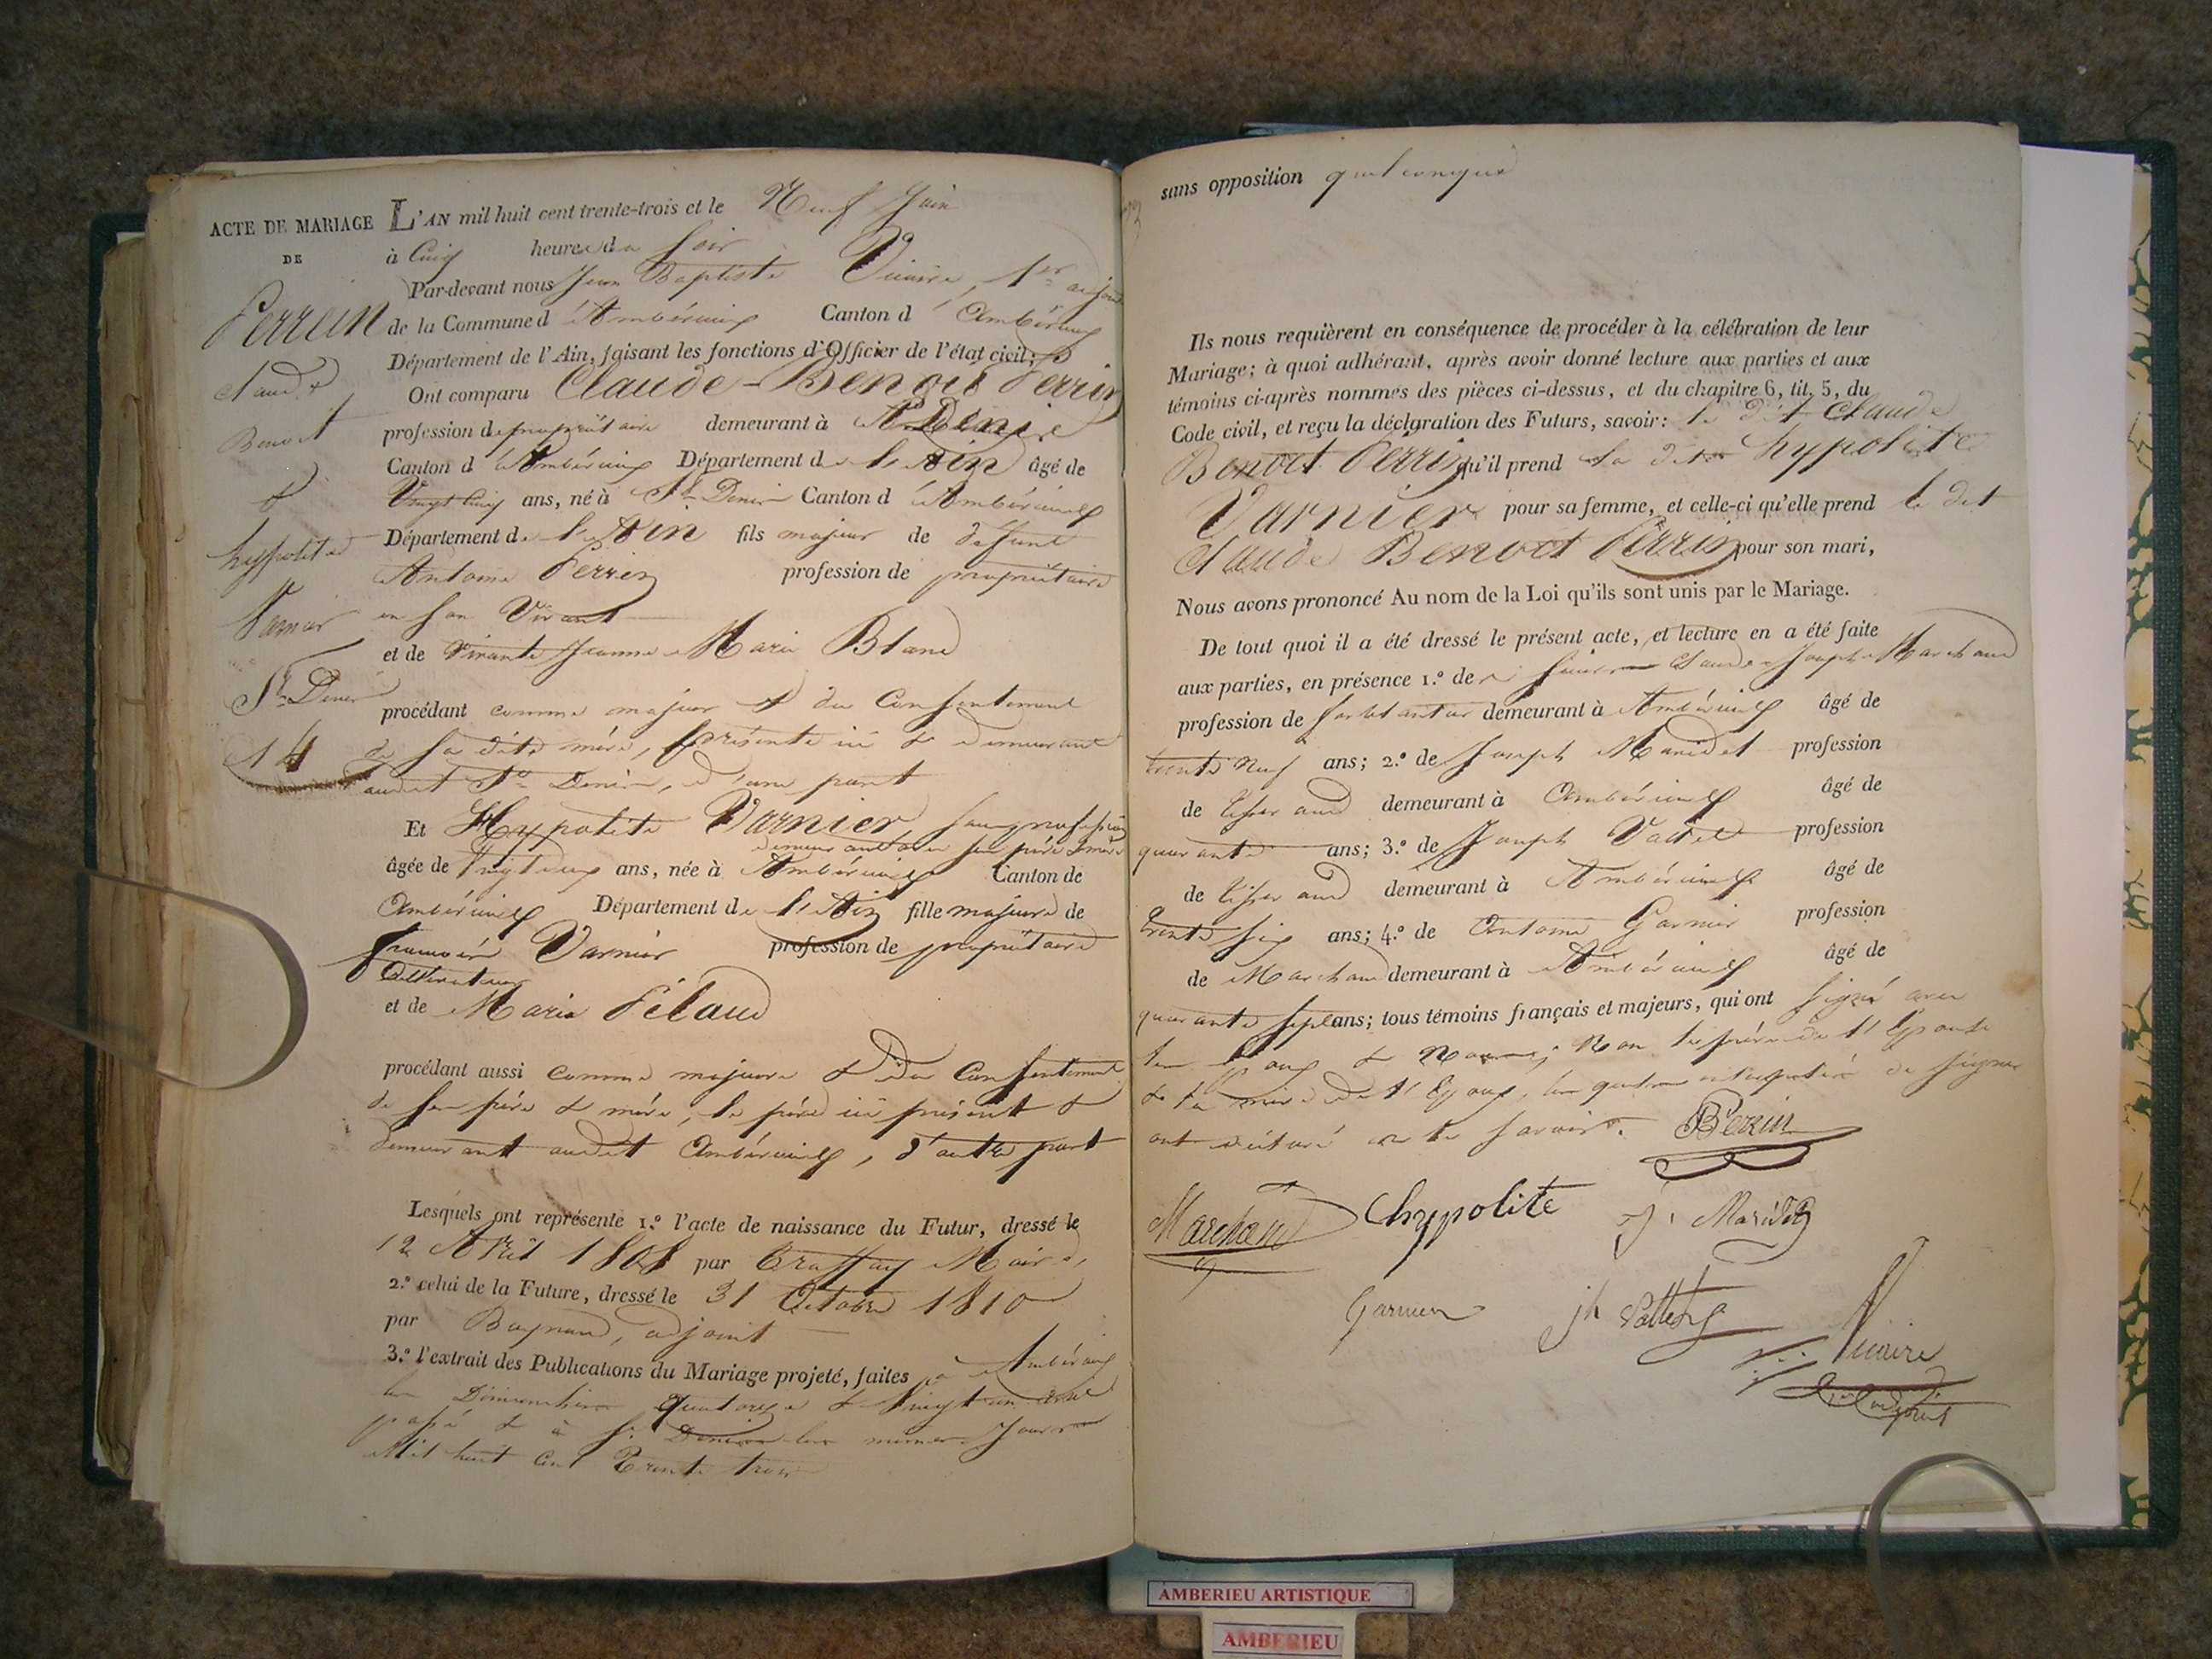 ACTE DE MARIAGE
DE
Perrin
Claude
Benoit
&
hypolite
Varnier
St Denis
14
L'AN mil huit cent trente-trois et le Neuf Juin
à Cinq heures du Soir
Par-devant nous Jean Baptiste Vicaire, 1er adjoint
de la Commune d'Ambérieux Canton d'Ambérieux
Département de l'Ain, faisant les fonctions d'Officier de l'état civil;
Ont comparu Claude-Benoit Perrin
profession de propriétaire demeurant à St Denis
Canton d'Ambérieux Département de l'Ain âgé de
Vingt Cinq ans, né à St Denis Canton d'Ambérieux
Département de l'Ain fils majeur de défunt
Antoine Perrin profession de propriétaire
en son Vivant
et de Vivante Jeanne Marie Blanc
procédant comme majeur & du Consentement
de sa dite mère, présente ici & demeurant
audit St Denis, d'une part
Et Hypolite Varnier sans profession
demeurant avec ses père & mère
âgée de Vingt deux ans, née à Ambérieux Canton de
Ambérieux Département de l'Ain fille majeure de
françois Varnier profession de propriétaire
Cultivateur
et de Marie Pélaud
procédant aussi comme majeure & du Consentement
de ses père & mère, le père ici présent &
demeurant audit Ambérieux, d'autre part
Lesquels ont représenté 1.º l'acte de naissance du Futur, dressé le
12 Avril 1808 par Maire,
2.º celui de la Future, dressé le 31 Octobre 1810
par adjoint
3.º l'extrait des Publications du Mariage projeté, faites à Ambérieux
les Dimanches quatorze & Vingt un avril
passé & à St Denis les mêmes Jours
Mil huit Cent Trente trois
sans opposition quelconque
Ils nous requièrent en conséquence de procéder à la célébration de leur
Mariage; à quoi adhérant, après avoir donné lecture aux parties et aux
témoins ci-après nommés des pièces ci-dessus, et du chapitre 6, tit. 5, du
Code civil, et reçu la déclaration des Futurs, savoir: le dit Claude
Benoit Perrin qu'il prend la dite hypolite
Varnier pour sa femme, et celle-ci qu'elle prend le dit
Claude Benoit Perrin pour son mari,
Nous avons prononcé Au nom de la Loi qu'ils sont unis par le Mariage.
De tout quoi il a été dressé le présent acte, et lecture en a été faite
aux parties, en présence 1.º de Claude Joseph Marchand
profession de ferblantier demeurant à Ambérieux âgé de
trente Neuf ans; 2.º de Joseph Maridet profession
de tisserand demeurant à Ambérieux âgé de
quarante ans; 3.º de Joseph profession
de tisserand demeurant à Ambérieux âgé de
trente six ans; 4.º de Antoine Garnier profession
de Marchand demeurant à Ambérieux âgé de
quarante sept ans; tous témoins français et majeurs, qui ont signé avec
les Epoux & Nous; Non le père de l'Epouse
& la mère de l'Epoux, de signer
ont déclaré ne le savoir. Perrin
Marchand hypolite J. Maridet
Garnier jh
Vicaire
adjoint
AMBERIEU ARTISTIQUE
AMBERIEU